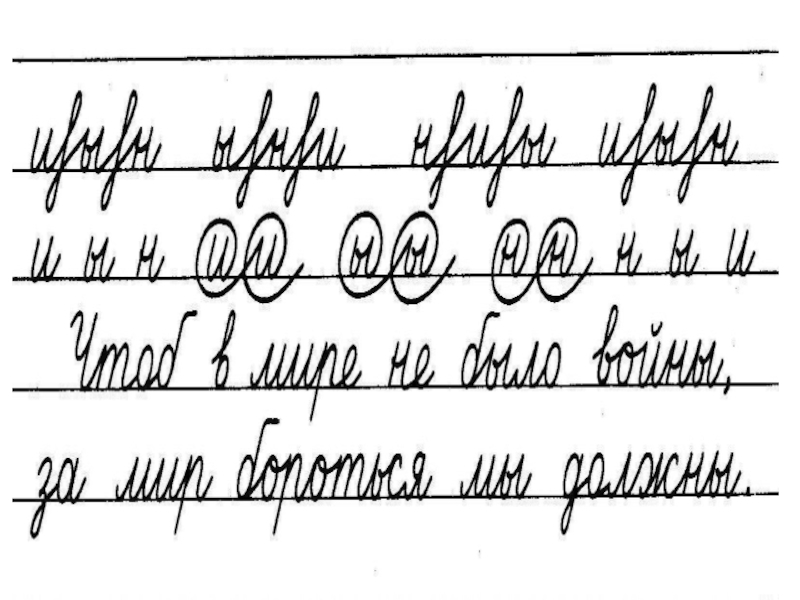 иын ыни ниы иын
и ы н и и ы ы н н н ы и
Чтоб в мире не было войны,
за мир бороться мы должны.